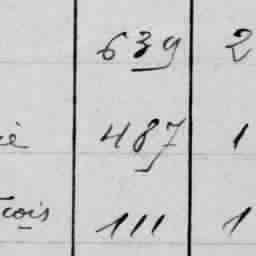 639 2
487 1
çois 111 1